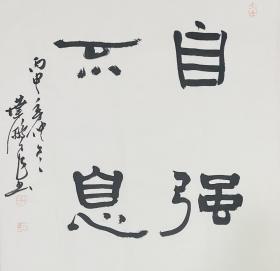 自强
不息
丙申年仲冬